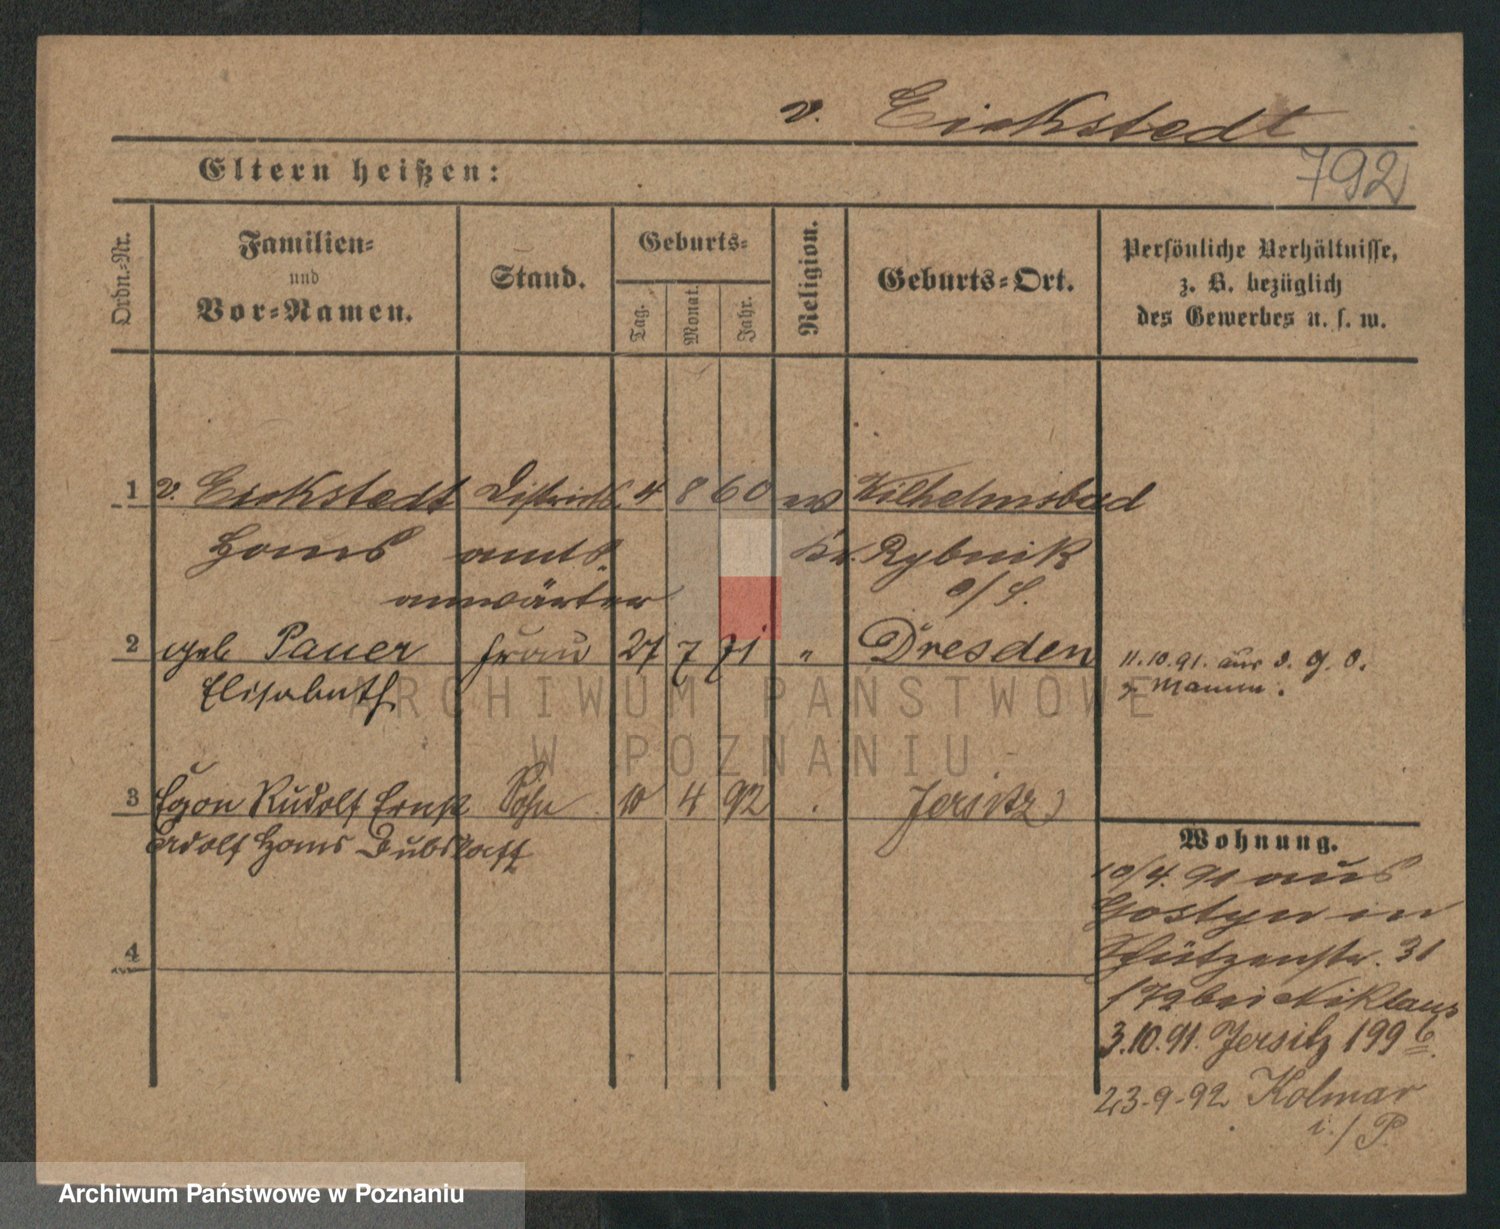 v. Eickstedt
Eltern heißen:
792
Ordn.-Nr.
Familien-
und
Vor-Namen.
Stand.
Geburts-
Tag.
Monat.
Jahr.
Religion.
Geburts-Ort.
Persönliche Verhältnisse,
z. B. bezüglich
des Gewerbes u. s. w.
1 v. Eickstedt Districts 4 8 60 ev Wilhelmsbad
Hans amts Kr. Rybnik
anwärter o/S.
2 geb Pauer Frau 27 7 71 " Dresden
Elisabeth
11.10.91. aus
3 Egon Rudolf Ernst Sohn 10 4 92 . Jersitz
Adolf Hans Dubslaff
4
Wohnung.
10/4. 91 aus
Gostyn in
Schützenstr. 31
172 bei Niklaus
3.10.91. Jersitz 199 b.
23-9-92 Kolmar
i./P.
ARCHIWUM PAŃSTWOWE
W POZNANIU
Archiwum Państwowe w Poznaniu